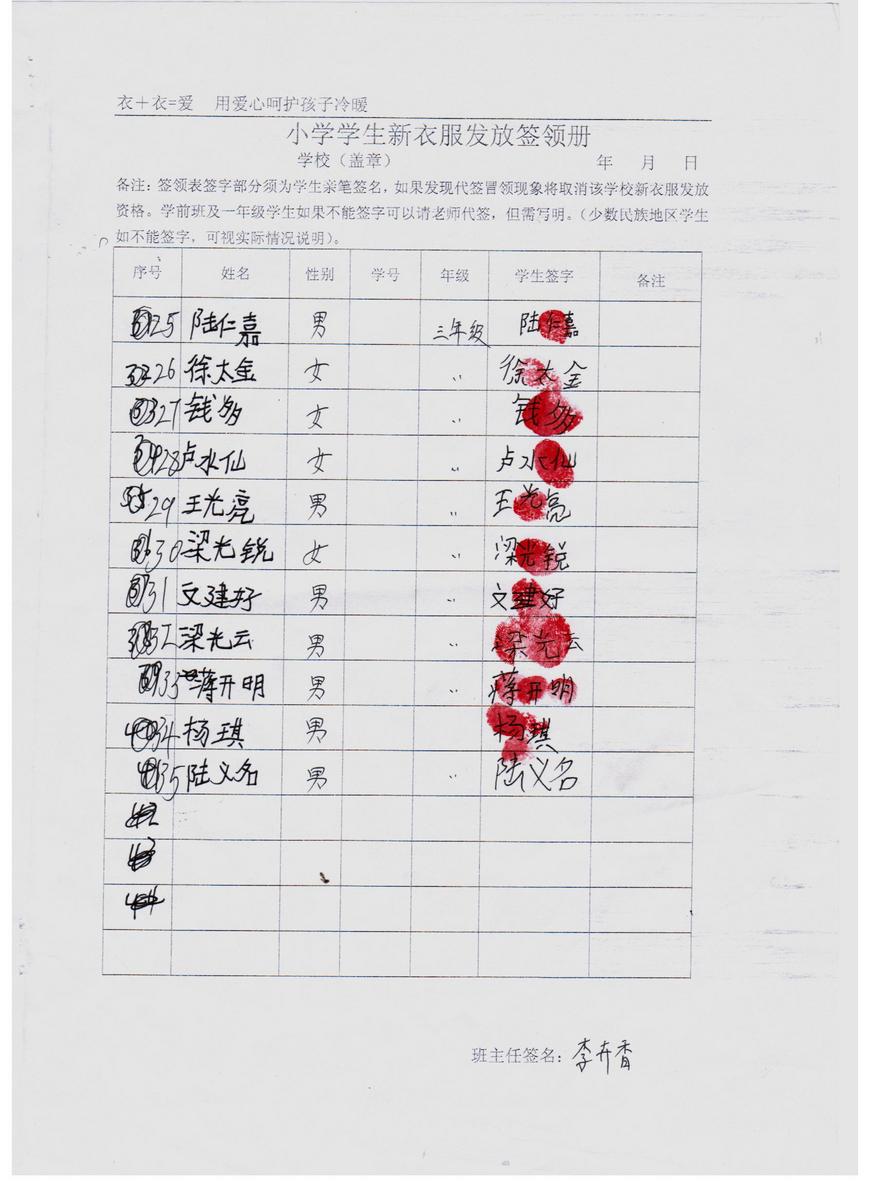 衣＋衣=爱 用爱心呵护孩子冷暖
小学学生新衣服发放签领册
学校（盖章） 年 月 日
备注：签领表签字部分须为学生亲笔签名，如果发现代签冒领现象将取消该学校新衣服发放
资格。学前班及一年级学生如果不能签字可以请老师代签，但需写明。（少数民族地区学生
如不能签字，可视实际情况说明）。
序号 姓名 性别 学号 年级 学生签字 备注
25 陆仁嘉 男 三年级 陆仁嘉
26 徐太金 女 〃 徐太金
27 钱多 女 〃 钱多
28 卢水仙 女 〃 卢水仙
29 王光亮 男 〃 王光亮
30 梁光锐 女 〃 梁光锐
31 文建好 男 〃 文建好
32 梁光云 男 〃 梁光云
33 蒋开明 男 〃 蒋开明
34 杨琪 男 〃 杨琪
35 陆义名 男 〃 陆义名
班主任签名：李卉香